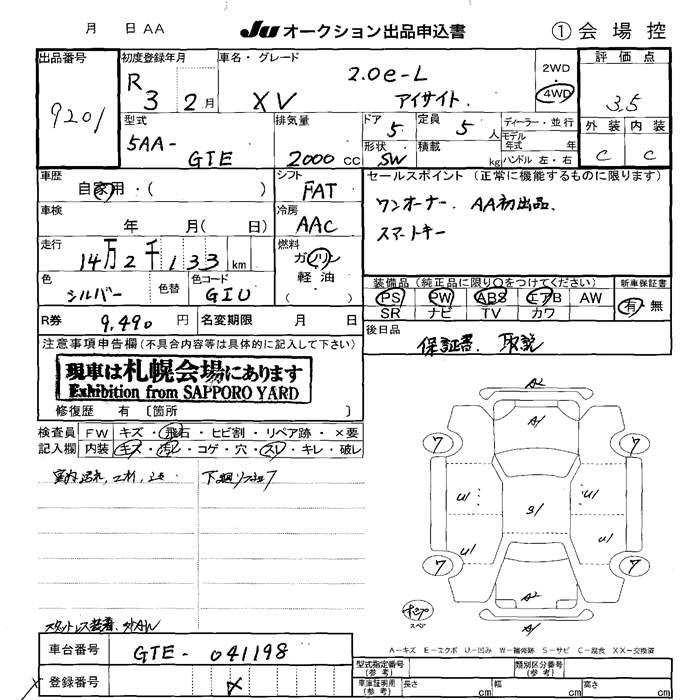 月 日 AA Ju オークション出品申込書 ① 会場控
出品番号 初度登録年月 車名・グレード 2WD 評価点
9201 R 3 2月 XV 2.0e-L アイサイト. 4WD 3.5
型式 排気量 ドア 定員 ディーラー・並行 外装 内装
5AA- GTE 2000 cc 5 5 人 モデル年式 年 C C
形状 SW 積載 kg ハンドル 左・右
車歴 自家用・( ) シフト FAT セールスポイント (正常に機能するものに限ります)
車検 年 月( 日) 冷房 AAC ワンオーナー. AA初出品.
スマートキー
走行 14万2千133 km 燃料 ガソリン 軽油 ( )
色 シルバー 色替 色コード G1U
装備品(純正品に限り○をつけてください) 新車保証書
PS PW ABS エアB AW 有・無
SR ナビ TV カワ
R券 9,490 円 名変期限 月 日 後日品
保証書. 取説
注意事項申告欄(不具合内容等は具体的に記入して下さい)
現車は札幌会場にあります
Exhibition from SAPPORO YARD
修復歴 有 〔箇所 〕
検査員 FW キズ・飛石・ヒビ割・リペア跡・×要
記入欄 内装 キズ・汚レ・コゲ・穴・スレ・キレ・破レ
A2
A1
7 7
U1 S1 U1
U1 U1
7 7
A2
スペア
A-キズ E-エクボ U-凹み W-補修跡 S-サビ C-腐食 XX-交換済
車台番号 GTE- 041198
登録番号
型式指定番号(参考) 類別区分番号(参考)
車庫証明用(参考) 長さ cm 幅 cm 高さ cm